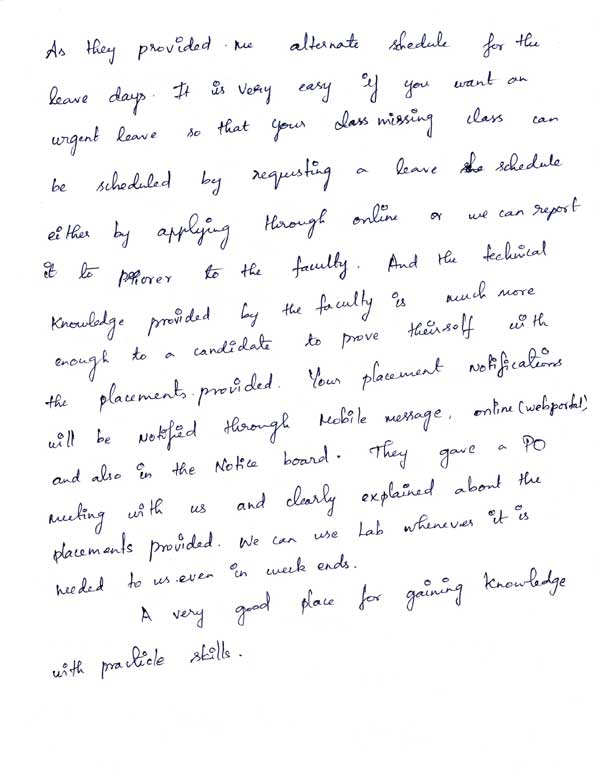 As they provided me alternate shedule for the
leave days. It is very easy if you want an
urgent leave so that your class missing class can
be scheduled by requsting a leave schedule
either by applying through online or we can report
it to to the faculty. And the technical
Knowledge provided by the faculty is much more
enough to a candidate to prove theirself with
the placements provided. Your placement Notifications
will be Notified through Mobile message, online (webportal)
and also in the Notice board. They gave a PO
meeting with us and clearly explained about the
placements provided. We can use Lab whenever it is
needed to us even in week ends.
A very good place for gaining knowledge
with practicle skills.